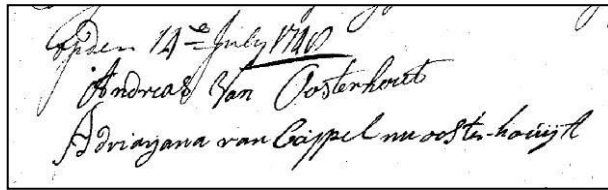 opden 14e July 1740
Andreas Van Oosterhout
Adriayana van Cappel nu ooster-houijt